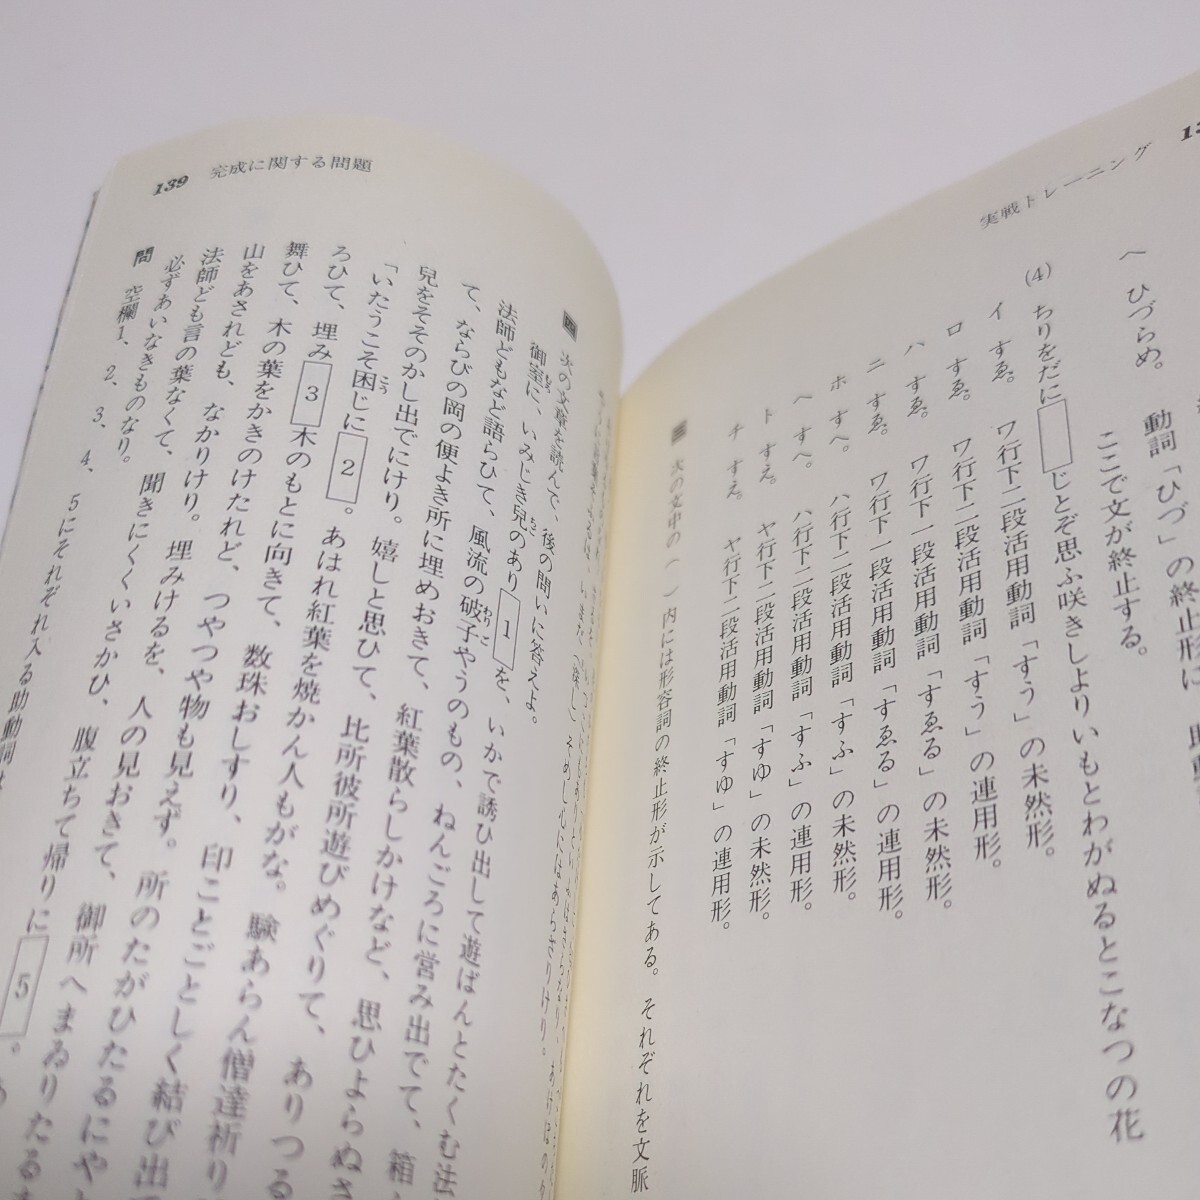 実戦トレーニング
ヘ ひづらめ。
動詞「ひづ」の終止形に
ここで文が終止する。
(4) ちりをだに□じとぞ思ふ咲きしよりいもとわがぬるとこなつの花
イ すゑ。 ワ行下二段活用動詞「すう」の未然形。
ロ すゑ。 ワ行下二段活用動詞「すう」の連用形。
ハ すゑ。 ワ行下一段活用動詞「すゑる」の未然形。
ニ すゑ。 ワ行下一段活用動詞「すゑる」の連用形。
ホ すへ。 ハ行下二段活用動詞「すふ」の未然形。
ヘ すへ。 ハ行下二段活用動詞「すふ」の連用形。
ト すえ。 ヤ行下二段活用動詞「すゆ」の未然形。
チ すえ。 ヤ行下二段活用動詞「すゆ」の連用形。
三 次の文中の( )内には形容詞の終止形が示してある。それぞれを文脈
139 完成に関する問題
四 次の文章を読んで、後の問いに答えよ。
御室に、いみじき児のあり1を、いかで誘ひ出して遊ばんとたくむ法
師どもなど語らひて、風流の破子やうのもの、ねんごろに営み出でて、箱
て、ならびの岡の便よき所に埋めおきて、紅葉散らしかけなど、思ひよらぬさ
児をそそのかし出でにけり。嬉しと思ひて、比所彼所遊びめぐりて、ありつる
「いたうこそ困じに2。あはれ紅葉を焼かん人もがな。験あらん僧達祈り
ろひて、埋み3木のもとに向きて、数珠おしすり、印ことごとしく結び出
舞ひて、木の葉をかきのけたれど、つやつや物も見えず。所のたがひたるにや
山をあされども、なかりけり。埋みけるを、人の見おきて、御所へまゐりたる
法師ども言の葉なくて、聞きにくくいさかひ、腹立ちて帰りに5。
必ずあいなきものなり。
問 空欄1、2、3、4、5にそれぞれ入る助動詞は